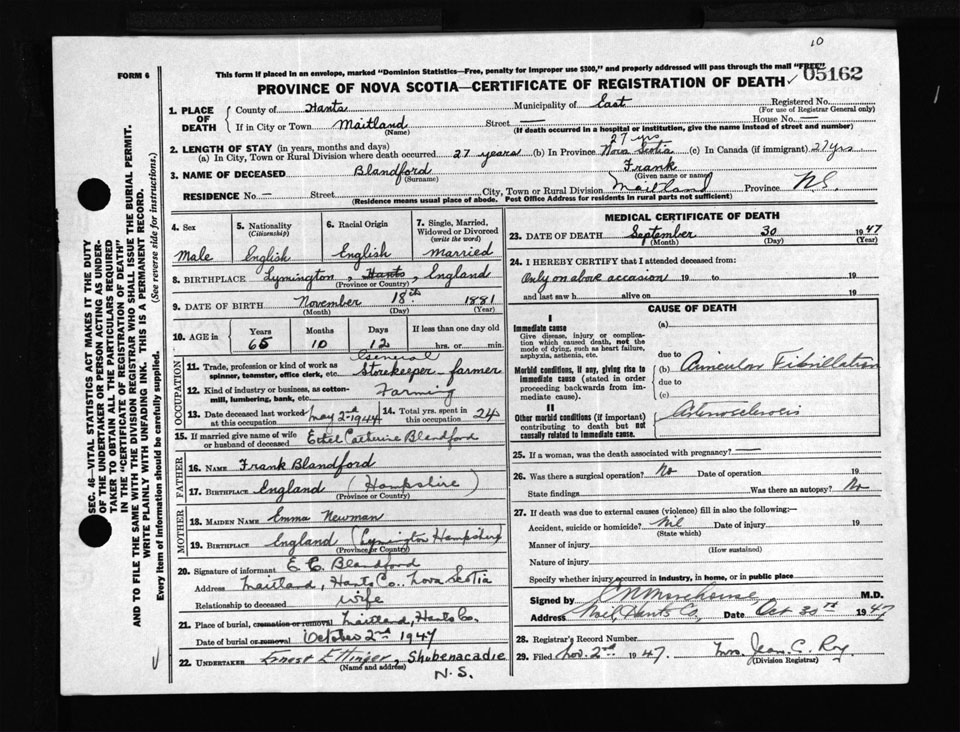 10
FORM 6
This form if placed in an envelope, marked "Dominion Statistics—Free, penalty for improper use $300," and properly addressed will pass through the mail "FREE"
PROVINCE OF NOVA SCOTIA—CERTIFICATE OF REGISTRATION OF DEATH ✓ 05162
SEC. 46—VITAL STATISTICS ACT MAKES IT THE DUTY
OF THE UNDERTAKER OR PERSON ACTING AS UNDER-
TAKER TO OBTAIN ALL THE PARTICULARS REQUIRED
IN THE "CERTIFICATE OF REGISTRATION OF DEATH"
AND TO FILE THE SAME WITH THE DIVISION REGISTRAR WHO SHALL ISSUE THE BURIAL PERMIT.
WRITE PLAINLY WITH UNFADING INK. THIS IS A PERMANENT RECORD.
Every item of information should be carefully supplied. (See reverse side for instructions.)
1. PLACE OF DEATH
County of Hants Municipality of East Registered No.
(For use of Registrar General only)
If in City or Town Maitland Street — House No. —
(Name) (If death occurred in a hospital or institution, give the name instead of street and number)
2. LENGTH OF STAY (in years, months and days) 27 yrs
(a) In City, Town or Rural Division where death occurred 27 years (b) In Province Nova Scotia (c) In Canada (if immigrant) 27 yrs
3. NAME OF DECEASED Blandford Frank
(Surname) (Given name or names)
RESIDENCE No — Street City, Town or Rural Division Maitland Province N.S.
(Residence means usual place of abode. Post Office Address for residents in rural parts not sufficient)
4. Sex 5. Nationality (Citizenship) 6. Racial Origin 7. Single, Married, Widowed or Divorced (write the word)
Male English English Married
8. BIRTHPLACE Lymington, Hants, England
(Province or Country)
9. DATE OF BIRTH November 18th 1881
(Month) (Day) (Year)
10. AGE in Years Months Days If less than one day old
65 10 12 hrs. or min.
OCCUPATION
11. Trade, profession or kind of work as General
spinner, teamster, office clerk, etc. Storekeeper - farmer
12. Kind of industry or business, as cotton-
mill, lumbering, bank, etc. Farming
13. Date deceased last worked at this occupation May 2nd 1944 14. Total yrs. spent in this occupation 24
15. If married give name of wife or husband of deceased Ethel Catherine Blandford
FATHER
16. NAME Frank Blandford
17. BIRTHPLACE England (Hampshire)
(Province or Country)
MOTHER
18. MAIDEN NAME Emma Newman
19. BIRTHPLACE England (Lymington Hampshire)
(Province or Country)
20. Signature of informant E. C. Blandford
Address Maitland, Hants Co., Nova Scotia
Relationship to deceased wife
21. Place of burial, cremation or removal Maitland, Hants Co.
Date of burial or removal October 2nd 1947
22. UNDERTAKER Ernest Ettinger, Shubenacadie
(Name and address) N.S.
MEDICAL CERTIFICATE OF DEATH
23. DATE OF DEATH September 30 1947
(Month) (Day) (Year)
24. I HEREBY CERTIFY that I attended deceased from:
Only on above occasion 19 to 19
and last saw h alive on 19
CAUSE OF DEATH
I
Immediate cause
Give disease, injury or complication which caused death, not the mode of dying, such as heart failure, asphyxia, asthenia, etc.
(a)
due to
Morbid conditions, if any, giving rise to immediate cause (stated in order proceeding backwards from immediate cause).
(b) Auricular Fibrillation
due to
(c)
II
Other morbid conditions (if important) contributing to death but not causally related to immediate cause.
Arteriosclerosis
25. If a woman, was the death associated with pregnancy? —
26. Was there a surgical operation? No Date of operation 19
State findings Was there an autopsy? No
27. If death was due to external causes (violence) fill in also the following:—
Accident, suicide or homicide? Nil Date of injury 19
(State which)
Manner of injury
(How sustained)
Nature of injury
Specify whether injury occurred in industry, in home, or in public place
Signed by Morehouse M.D.
Address Noel, Hants Co., Date Oct 30 1947
28. Registrar's Record Number
29. Filed Nov. 2nd 1947. Mrs. Jean C. Roy
(Division Registrar)